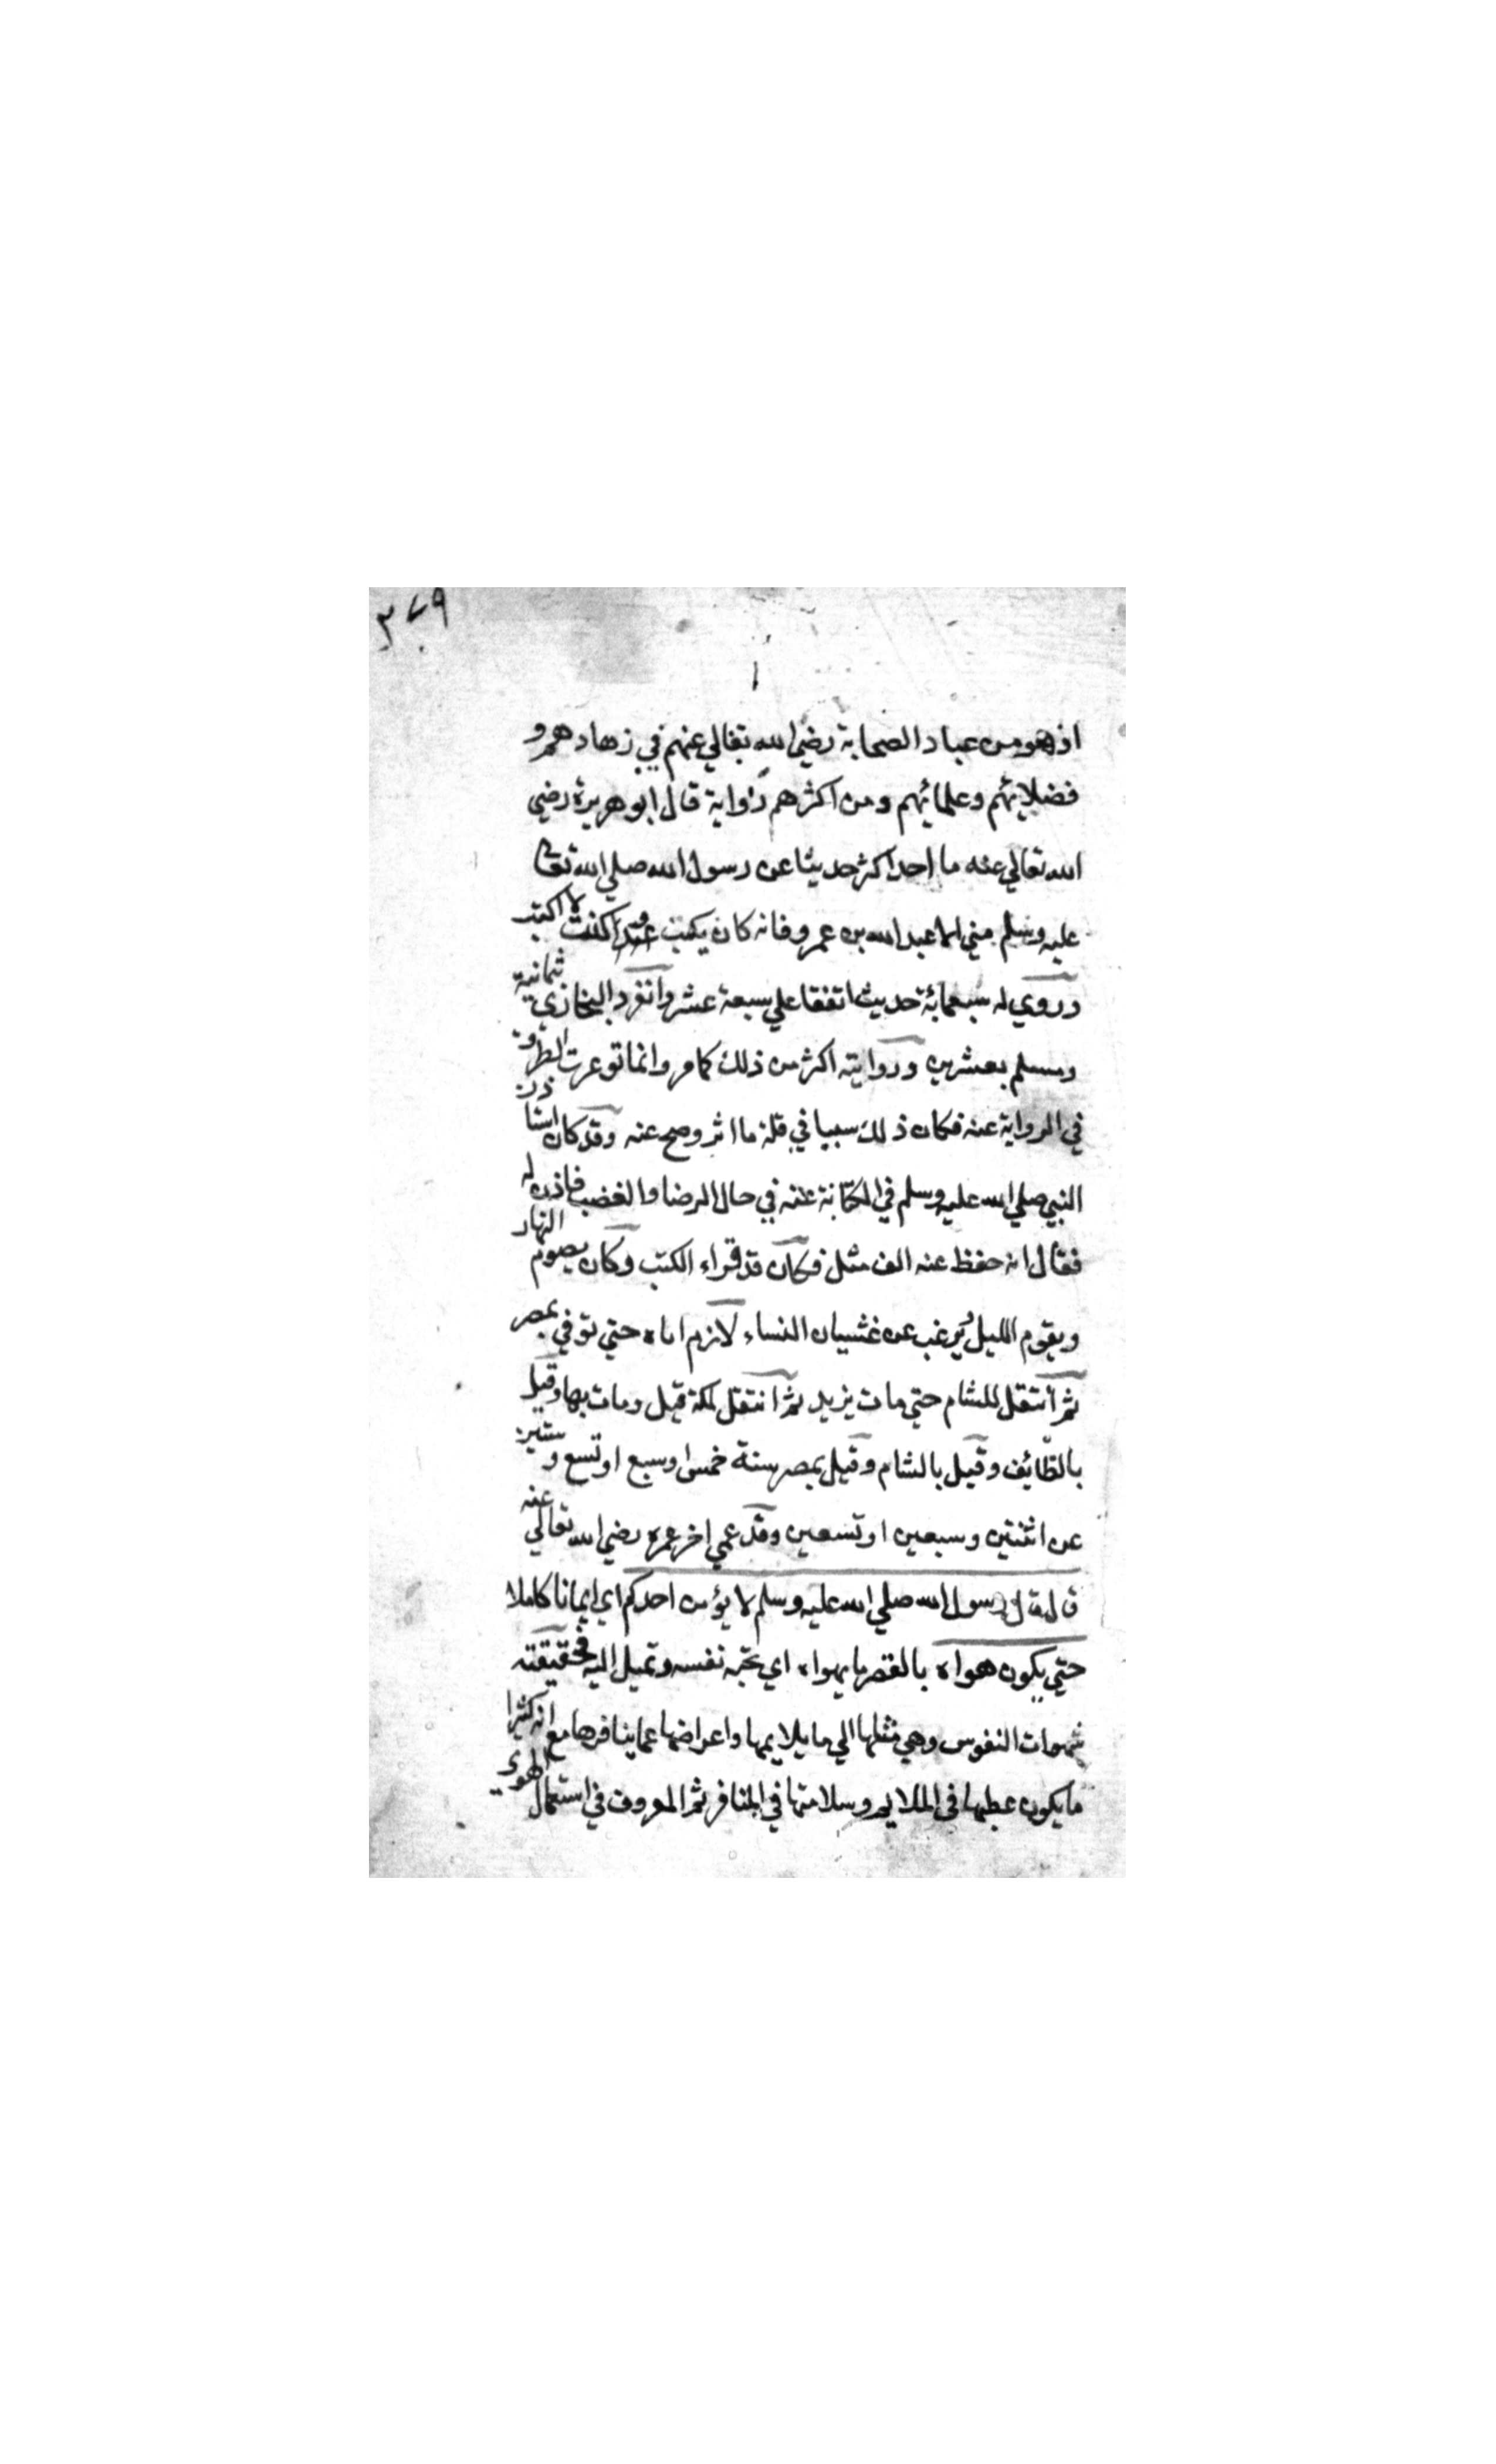 ٣٧٩
١
اذ هو من عباد الصحابة رضي الله تعالي عنهم في زهادهم و
فضلايهم وعلمائهم ومن اكثرهم رواية قال ابو هريرة رضي
الله تعالي عنه ما احد اكثر حديثا عن رسول الله صلي الله تعا
عليه وسلم مني الا عبد الله بن عمرو فانه كان يكتب وكنت لا اكتب
وروي له سبعمائة حديث اتفقا علي سبعة عشر وانفرد البخاري ثمانية
ومسلم بعشرين وروايته اكثر من ذلك كما مر وانما توعرت الطرق
في الرواية عنه فكان ذلك سببا في قلة ما اثر وصح عنه وقد كان استاذن
النبي صلي الله عليه وسلم في الكتابة عنه في حال الرضا والغضب فاذن له
فقال انه حفظ عنه الف مثل فكان قد قراء الكتب وكان يصوم النهار
ويقوم الليل ويرغب عن غشيان النساء لازم اباه حتي توفي بمصر
ثم انتقل للشام حتي مات يزيد ثم انتقل لمكة قيل ومات بها وقيل
بالطائف وقيل بالشام وقيل بمصر سنة خمس او سبع او تسع و ستين
عن اثنتين وسبعين او تسعين وقد عمي اخر عمره رضي الله تعالي عنه
قال قال رسول الله صلي الله عليه وسلم لا يؤمن احدكم اي ايمانا كاملا
حتي يكون هواه بالقصر ما يهواه اي تحبه نفسه وتميل اليه فحقيقته
شهوات النفوس وهي مثلها الي ما يلايمها واعراضها عما ينافرها مع انه كثيرا
ما يكون عطبها في الملايم وسلامتها في المنافر ثم المعروف في استعمال الهوي